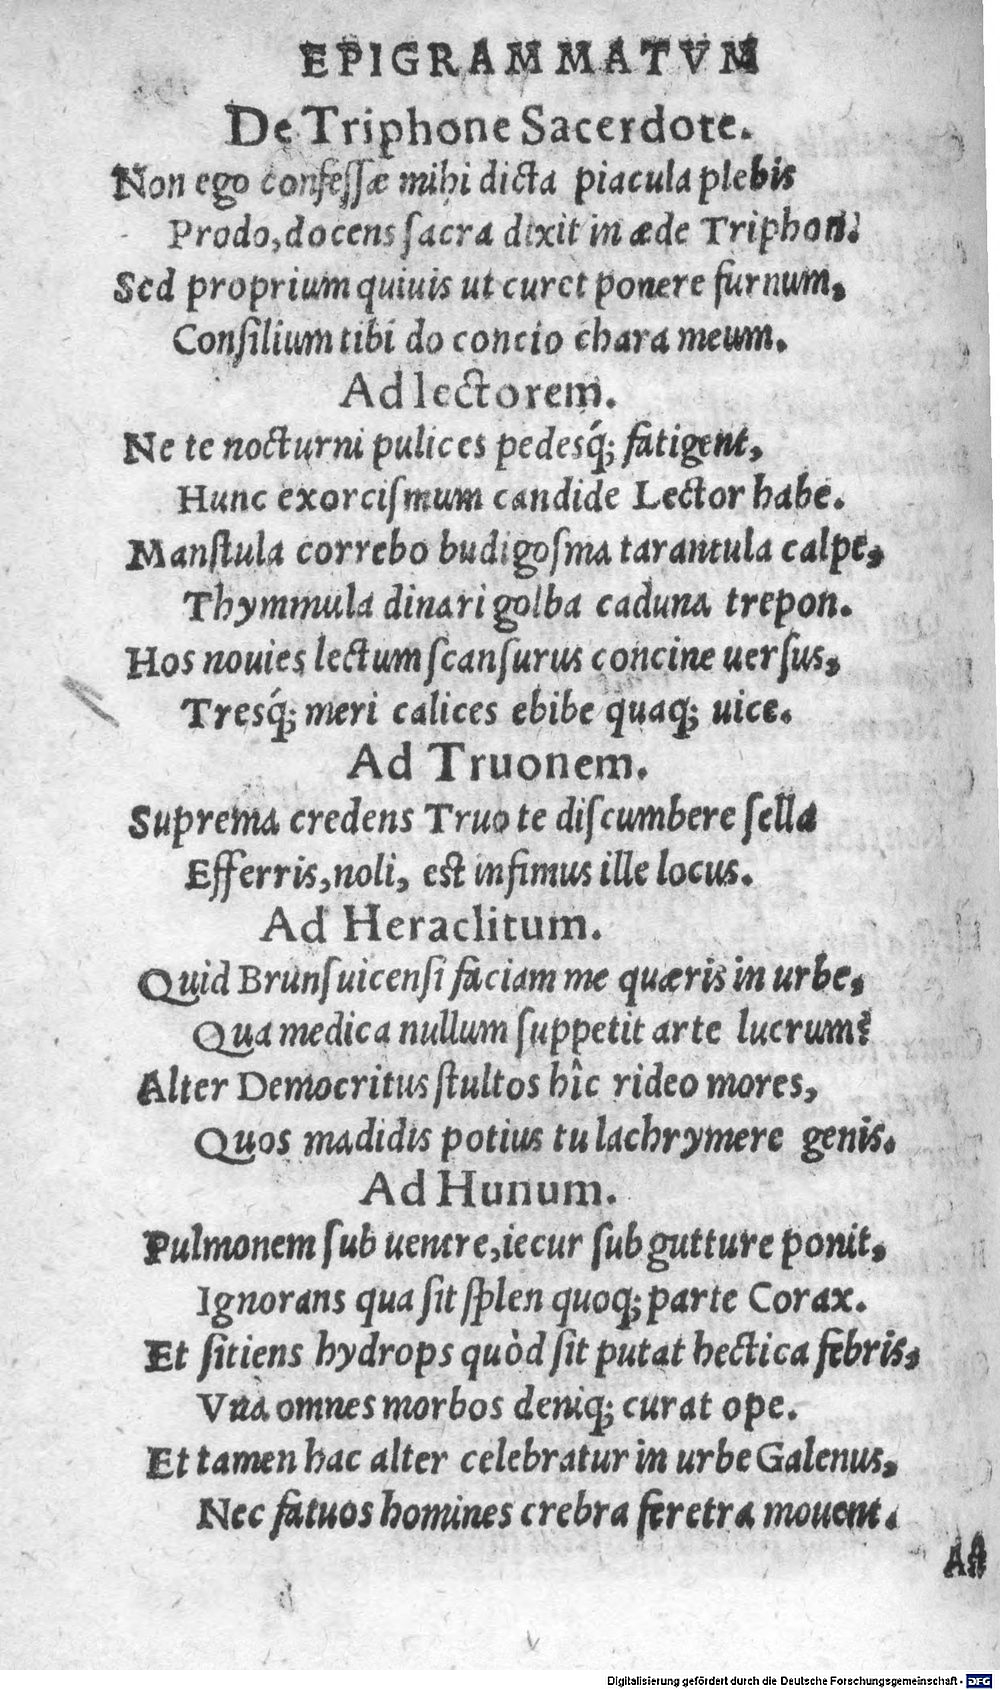 EPIGRAMMATVM
De Triphone Sacerdote.
Non ego confeſſæ mihi dicta piacula plebis
Prodo, docens ſacra dixit in æde Triphon:
Sed proprium quiuis ut curet ponere furnum,
Conſilium tibi do concio chara meum.
Ad lectorem.
Ne te nocturni pulices pedesq́; fatigent,
Hunc exorciſmum candide Lector habe.
Manſtula correbo budigoſma tarantula calpe,
Thymmula dinari golba caduna trepon.
Hos nouies lectum ſcanſurus concine uerſus,
Tresq́; meri calices ebibe quaq; uice.
Ad Truonem.
Suprema credens Truo te diſcumbere ſella
Efferris, noli, eſt infimus ille locus.
Ad Heraclitum.
Quid Brunſuicenſi faciam me quæris in urbe,
Qua medica nullum ſuppetit arte lucrum?
Alter Democritus ſtultos hîc rideo mores,
Quos madidis potius tu lachrymere genis.
Ad Hunum.
Pulmonem ſub uentre, iecur ſub gutture ponit,
Ignorans qua ſit ſplen quoq; parte Corax.
Et ſitiens hydrops quòd ſit putat hectica febris,
Vna omnes morbos deniq; curat ope.
Et tamen hac alter celebratur in urbe Galenus,
Nec fatuos homines crebra feretra mouent.
Ad
Digitalisierung gefördert durch die Deutsche Forschungsgemeinschaft - DFG